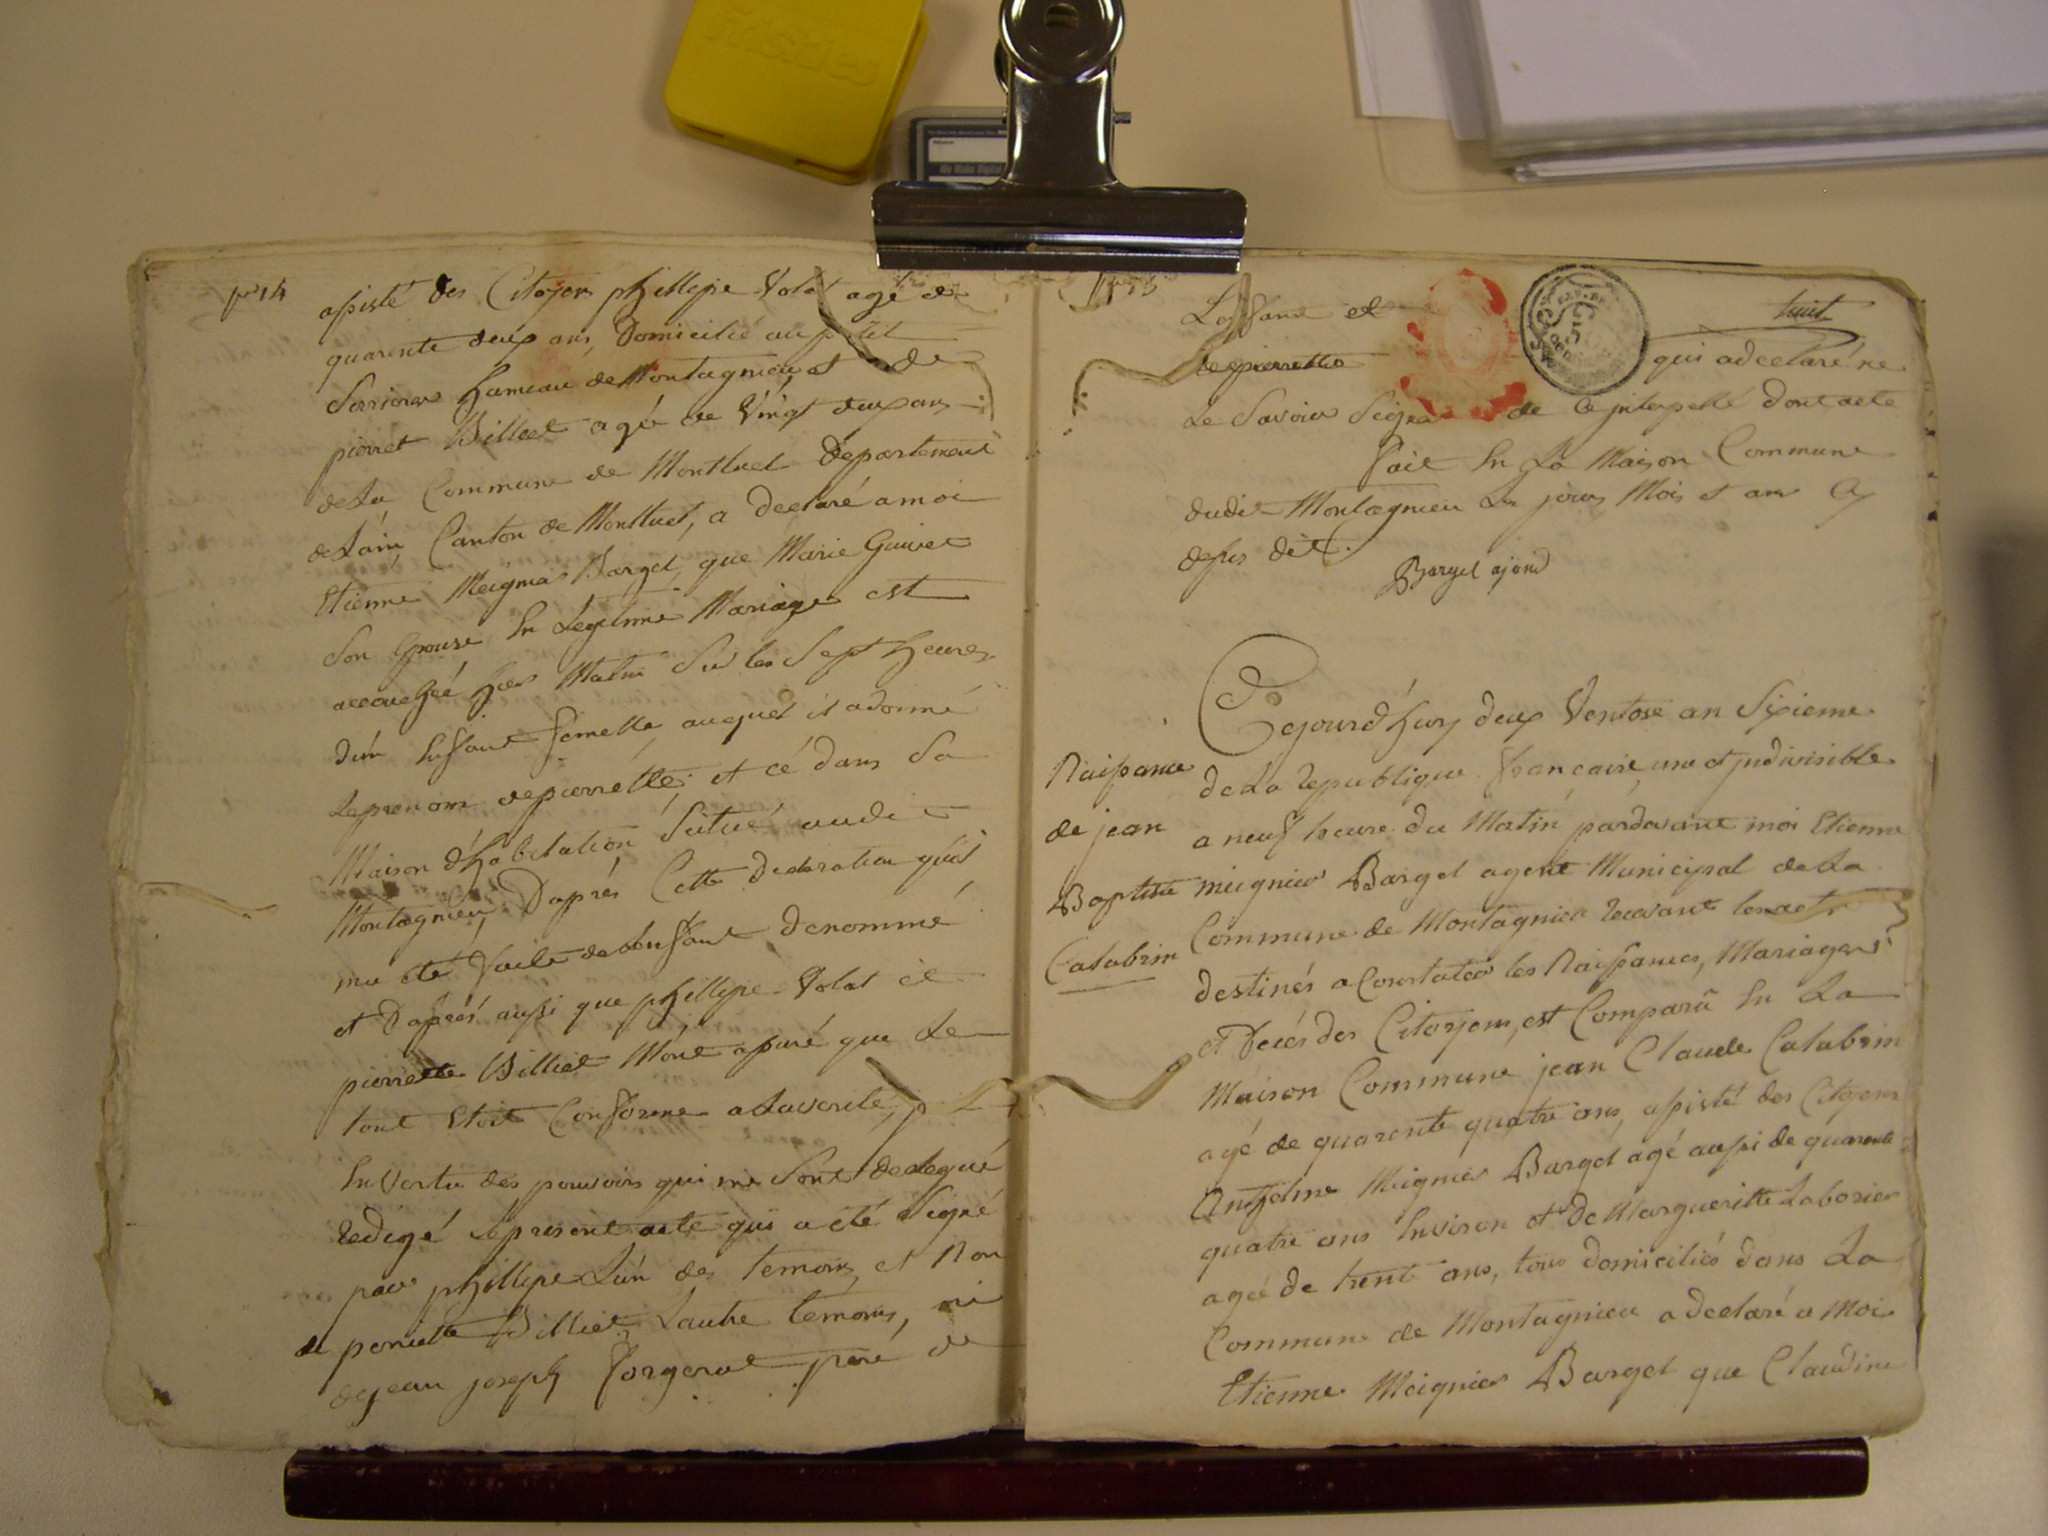 pr 14
assisté des Citoyens phillipe Volat agé de
quarente deux ans, Domicilié au petit
hameau de Montagnieu, et de
pierret Billiet agée de Vingt deux ans
de La Commune de Montluel departement
de Lain, Canton de Montluel, a declaré a moi
Etienne Meignier Barget, que Marie Guivet
Son Epouse En Legitime Mariage est
accouchée hier Matin Sur les Sept heures
d'un Enfant femelle auquel il adonné
Leprenom depierrette, et cé dans Sa
Maison d'habitation Situé audit
Montagnieu, D'aprés Cette declaration quil
ma eté faite de Lenfant denommé
et D'aprés aussi que phillipe Volat et
pierrette Billiet Mont assuré que Le
tout Etoit Conforme a Laverité, j
En Vertu des pouvoirs qui me Sont delegué
redigé Lepresent acte qui a été Signé
par phillipe L'un des temoins, et Non
de perrette Billiet, Lautre temoins, ni
de jean joseph forgerat pere de
Lenfant et
de pierrette
huit
qui a declaré ne
Le Savoir Signer de Ce jnterpellé dont acte
fait En La Maison Commune
dudit Montagnieu Les jours Mois et an Cy
dessus dit.
Barget ajend
Cejourd'huy deux Ventose an Sixieme
de La republique francaise une et jndivisible
a neuf heure du Matin pardavant moi Etienne
meignier Barget agent Municipal de La
Commune de Montagnieu recevant les acte
destinés a Constater les Naissances, Mariages
et Decés des Citoyens, est Comparu En La
Maison Commune jean Claude Calabrin
agé de quarente quatre ans, assisté des Citoyens
Anthelme Meignier Barget agé aussi de quarente
quatre ans Environ et de Margueritte Laborier
ageé de trent ans, tous domiciliés dans La
Commune de Montagnieu a declaré a Moi
Etienne Meignier Barget que Claudine
Naissance
de jean
Baptiste
Calabrin